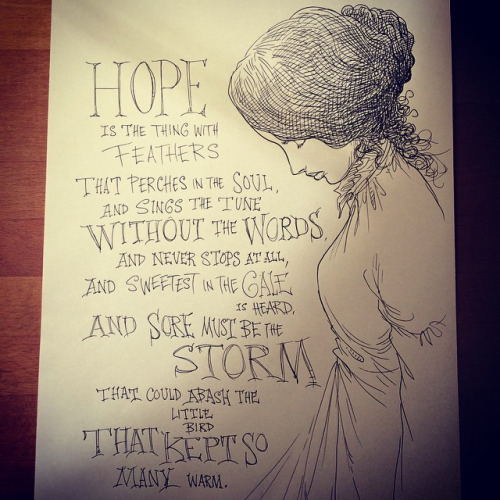 HOPE
IS THE THING WITH
FEATHERS
THAT PERCHES IN THE SOUL,
AND SINGS THE TUNE
WITHOUT THE WORDS,
AND NEVER STOPS AT ALL,
AND SWEETEST IN THE GALE
IS HEARD,
AND SORE MUST BE THE
STORM
THAT COULD ABASH THE
LITTLE
BIRD
THAT KEPT SO
MANY WARM.